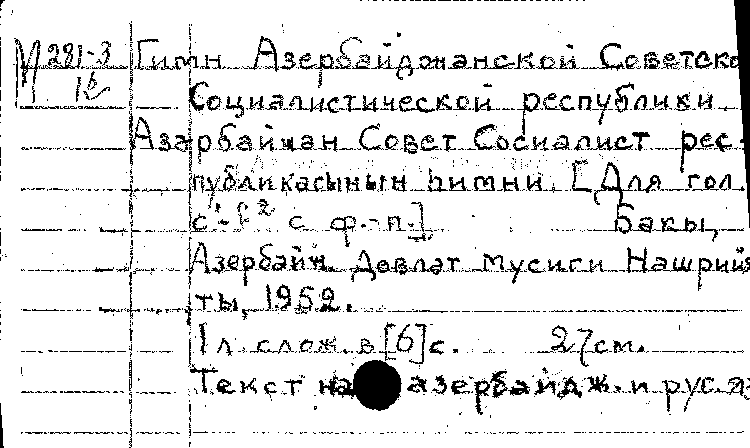 М 281-3 Гимн Азербайджанской Советско
16 Социалистической республики.
Азәрбайҹан Совет Сосиалист рес-
публикасынын һимни. [Для гол.
с ф.-п.] Бакы,
Азербайҹ. Девлат Мусиги Нашрий
ты, 1952.
1 л. слож. в [6] с. 27 см.
Текст на азербайдж. и рус. яз